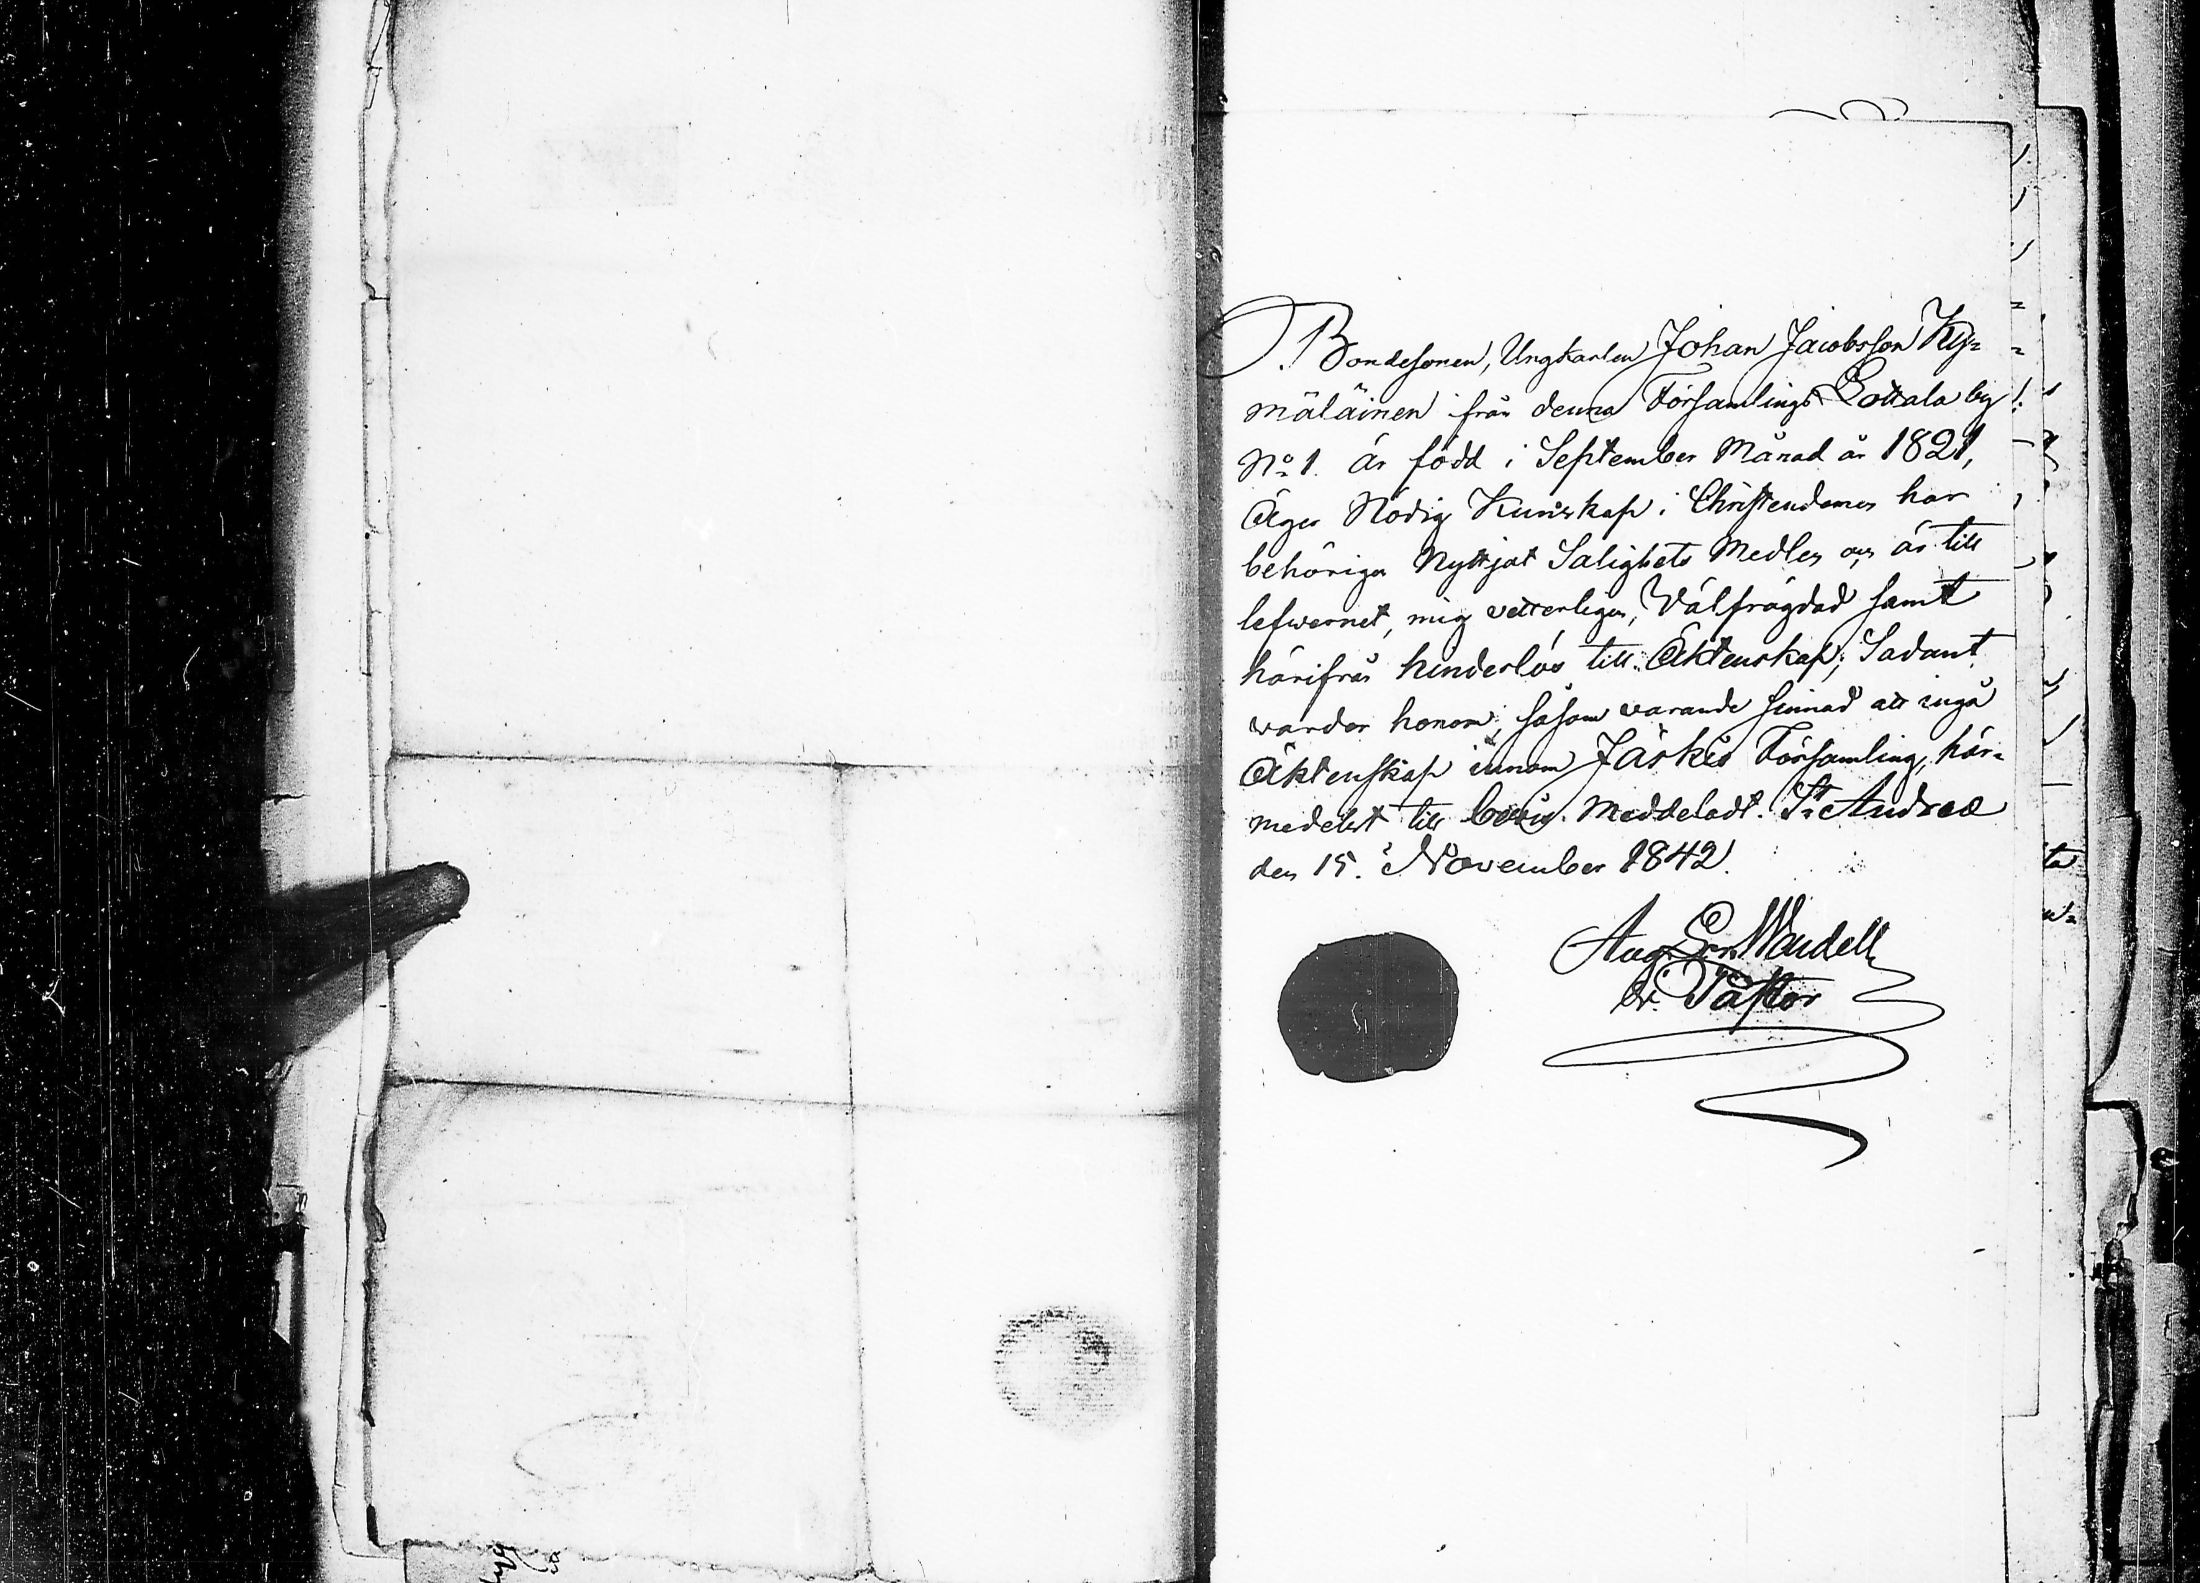 Bondesonen, Ungkarlen Johan Jacobsson Ky=
mäläinen från denna Församlings Gottala by
No 1. är född i September Månad år 1821,
Äger Nödig Kunskap i Christendomen har
behörigen Nyttjat Salighets Medlen och är till
lefwernet, mig vetterligen, Välfrägdad samt
härifrån hinderlös till Äktenskap; Sådant
varder honom, såsom varande sinnad att ingå
Äktenskap innom Jäskis Församling, här=
medelst till bevis Meddeladt. St Andreæ
den 15. November 1842.
Aug. Er. Wandell
v. Pastor